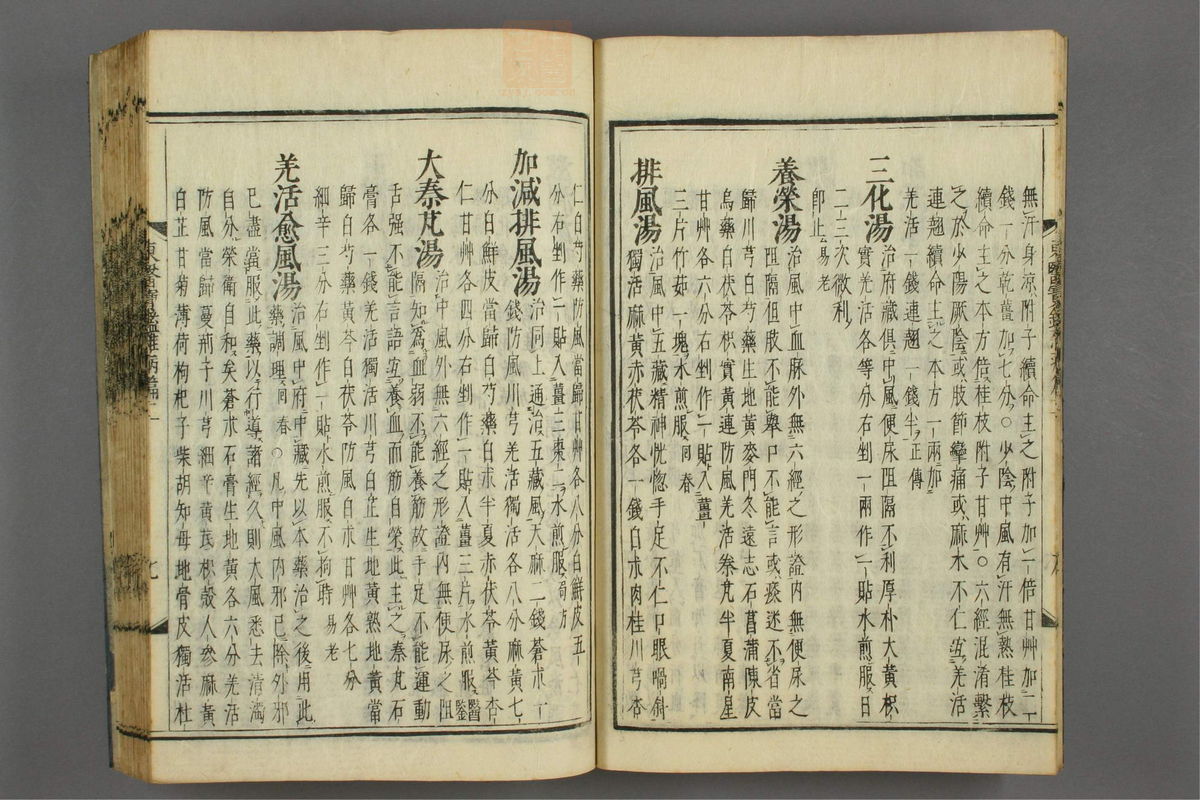 無汗身涼附子續命主之附子加一倍甘艸加二
錢一分乾薑加七分○少陰中風有汗無熱桂枝
續命主之本方倍桂枝附子甘艸○六經混淆繫
之於少陽厥陰或肢節攣痛或麻木不仁宜羌活
連翹續命主之本方一兩加
羌活一錢連翹一錢半正傳
三化湯治府藏俱中風便尿阻隔不利厚朴大黃枳
實羌活各等分右剉一兩作一貼水煎服日
二三次微利
即止易老
養榮湯治風中血脈外無六經之形證內無便尿之
阻隔但肢不能舉口不能言或痰迷不省當
歸川芎白芍藥生地黃麥門冬遠志石菖蒲陳皮
烏藥白茯苓枳實黃連防風羌活秦艽半夏南星
甘艸各六分右剉作一貼入薑
三片竹茹一塊水煎服回春
排風湯治風中五藏精神恍惚手足不仁口眼喎斜
獨活麻黃赤茯苓各一錢白朮肉桂川芎杏
仁白芍藥防風當歸甘艸各八分白鮮皮五
分右剉作二貼入薑三棗二水煎服局方
加減排風湯治同上通治五藏風天麻二錢蒼朮一
錢防風川芎羌活獨活各八分麻黃七
分白鮮皮當歸白芍藥白朮半夏赤茯苓黃芩杏
仁甘艸各四分右剉作一貼入薑三片水煎服醫鑒
大秦艽湯治中風外無六經之形證內無便尿之阻
隔知爲血弱不能養筋故手足不能運動
舌强不能言語宜養血而筋自榮此主之秦艽石
膏各一錢羌活獨活川芎白芷生地黃熟地黃當
歸白芍藥黃芩白茯苓防風白朮甘艸各七分
細辛三分右剉作一貼水煎服不拘時易老
羌活愈風湯治風中府中藏先以本藥治之後用此
藥調理回春○凡中風內邪已除外邪
已盡當服此藥以行導諸經久則大風悉去清濁
自分榮衛自和矣蒼朮石膏生地黃各六分羌活
防風當歸蔓荊子川芎細辛黃芪枳殼人參麻黃
白芷甘菊薄荷枸杞子柴胡知母地骨皮獨活杜